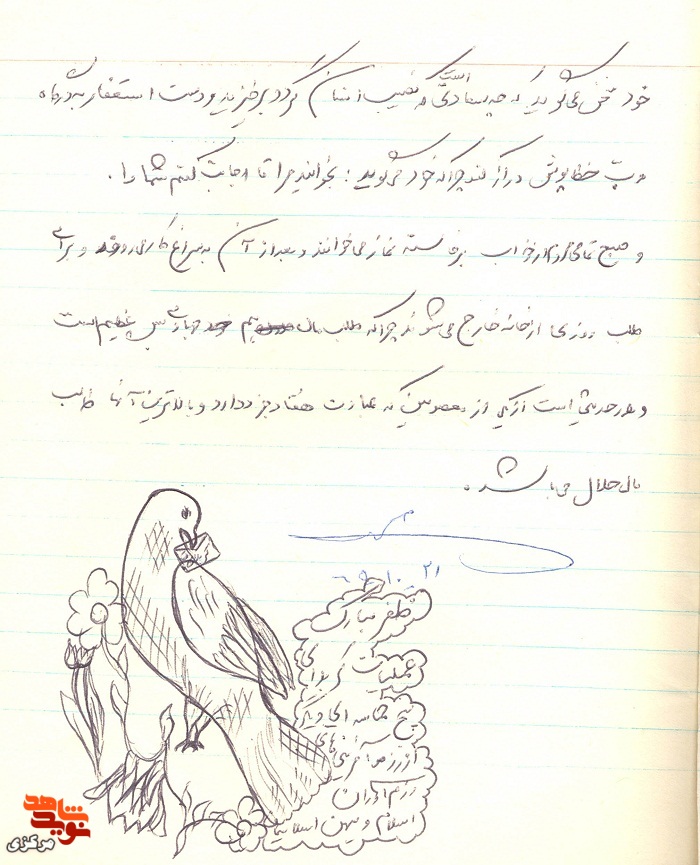 خود سخن می‌گوید که چه سعادتی است که نصیب انسان گردد برخیزید و دست استغفار به درگاه
رب خطاپوش دراز کنید چرا که خود میگوید: بخوانید مرا تا اجابت کنم شما را.
و صبح تمامی مردم از خواب برخاسته نماز می‌خوانند و بعد از آن به سراغ کار می‌روند و برای
طلب روزی از خانه خارج می‌شوند چرا که طلب مال هم خود جهادی بس عظیم است
و در حدیثی است از یکی از معصومین که عبادت هفتاد جزء دارد و بالاترین آنها طلب
مال حلال می‌باشد.
۲۱
ظفر مبارک
عملیات کربلای
پنج حماسه ای دیگر
از رزم آفرینی‌های
رزم‌آوران
اسلام و میهن اسلامیمان
نوید شاهد
مرکزی